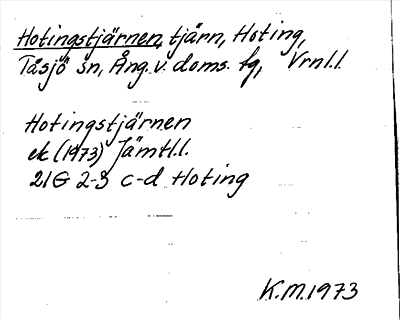 Hotingstjärnen, tjärn, Hoting,
Tåsjö sn, Ång. v. doms. fg, Vrnl.l.
Hotingstjärnen
ek (1973) Jämtl.l.
21G 2-3 c-d Hoting
K.M. 1973